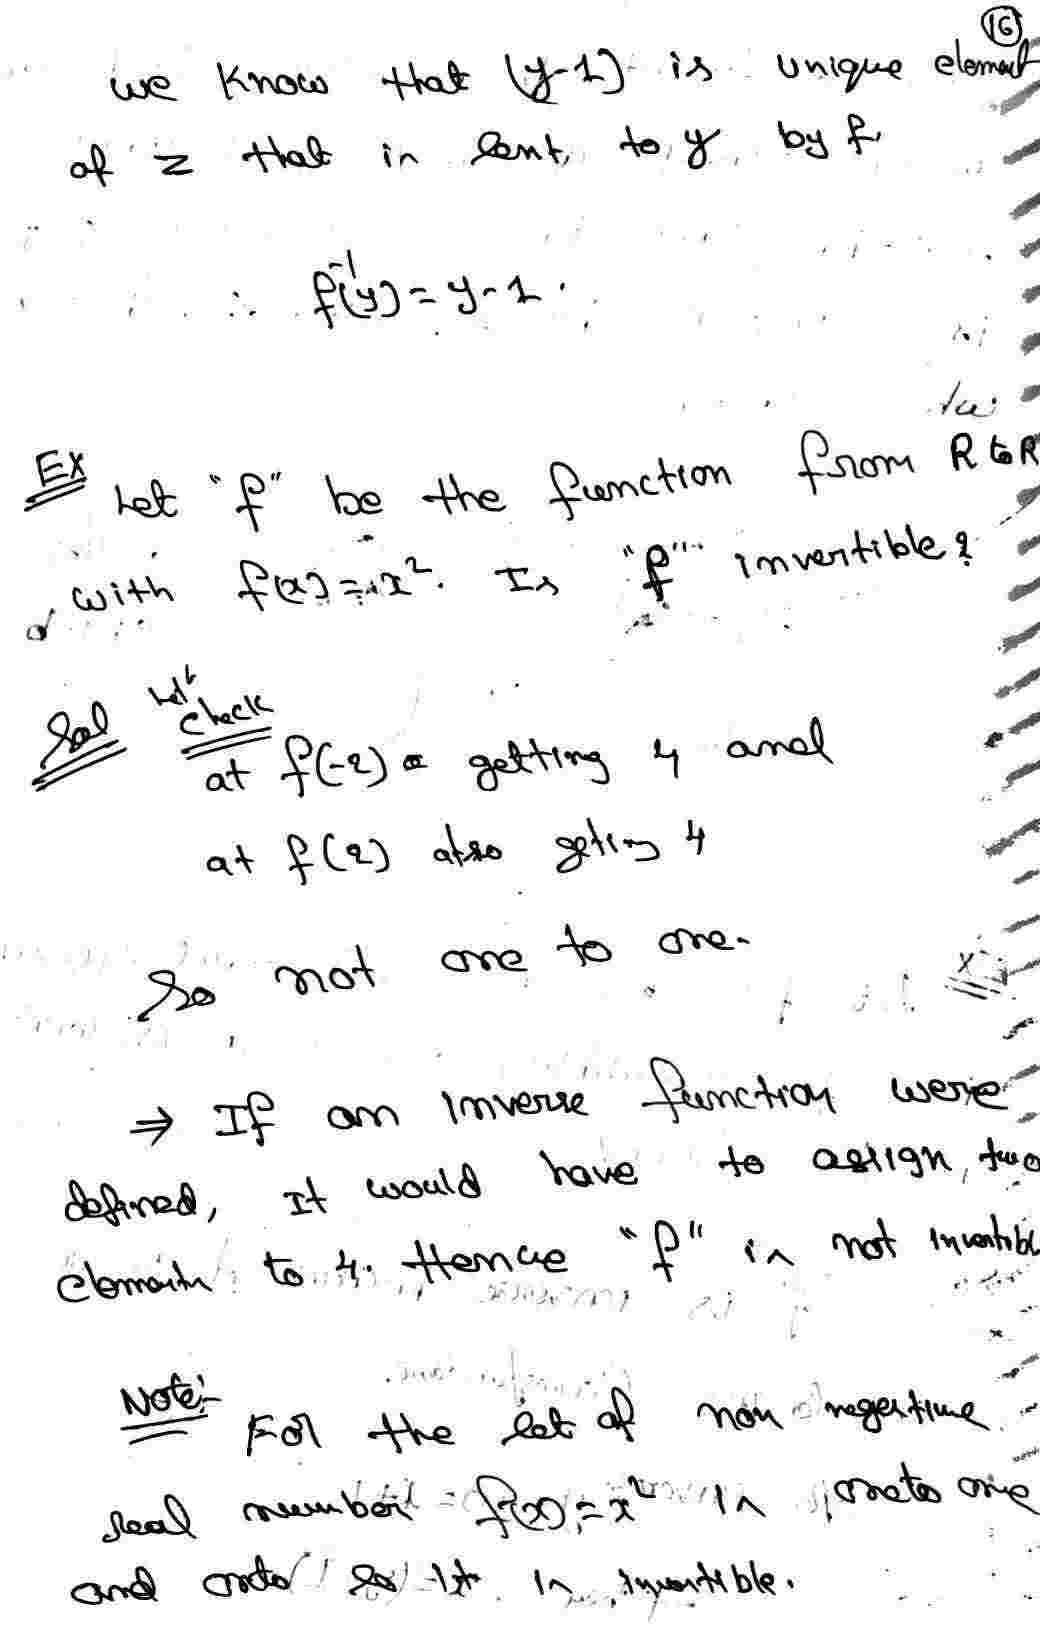 16
we know that (y-1) is unique element
of z that is sent to y by f.
∴ f⁻¹(y) = y-1.
Ex Let "f" be the function from R to R
with f(x) = x². Is "f" invertible?
Sol Let's check
at f(-2) = getting 4 and
at f(2) also geting 4
So not one to one.
⇒ If an inverse function were
defined, It would have to assign two
elements to 4. Hence "f" is not invertible
Note:- For the set of non negative
real number f(x) = x² is one to one
and onto so It is invertible.